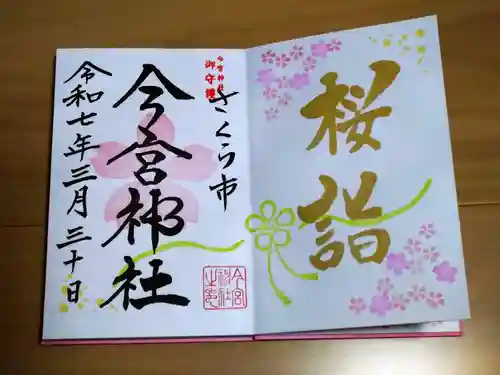 桜詣
今宮神社
御守護
さくら市
今宮神社
令和七年三月三十日